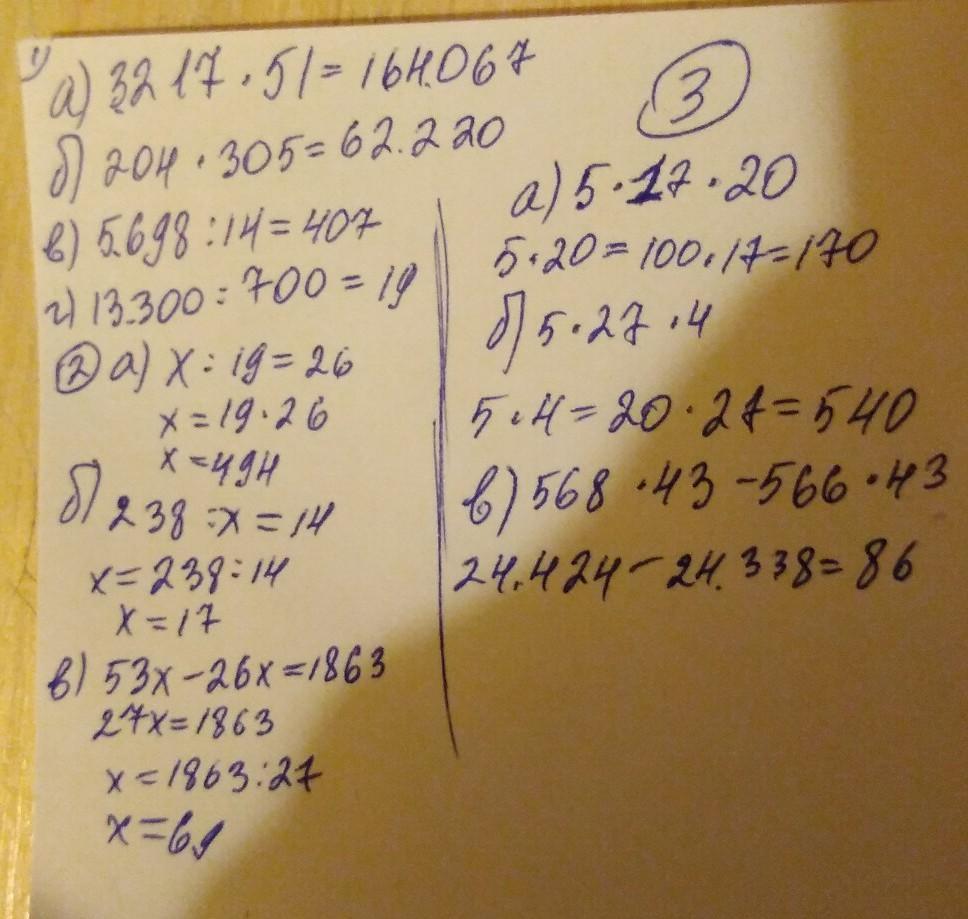 1)
а) 3217 · 51 = 164.067
б) 204 · 305 = 62.220
в) 5.698 : 14 = 407
г) 13.300 : 700 = 19
② а) x : 19 = 26
x = 19 · 26
x = 494
б) 238 : x = 14
x = 238 : 14
x = 17
в) 53x - 26x = 1863
27x = 1863
x = 1863 : 27
x = 69
③
а) 5 · 17 · 20
5 · 20 = 100 · 17 = 170
б) 5 · 27 · 4
5 · 4 = 20 · 27 = 540
в) 568 · 43 - 566 · 43
24.424 - 24.338 = 86